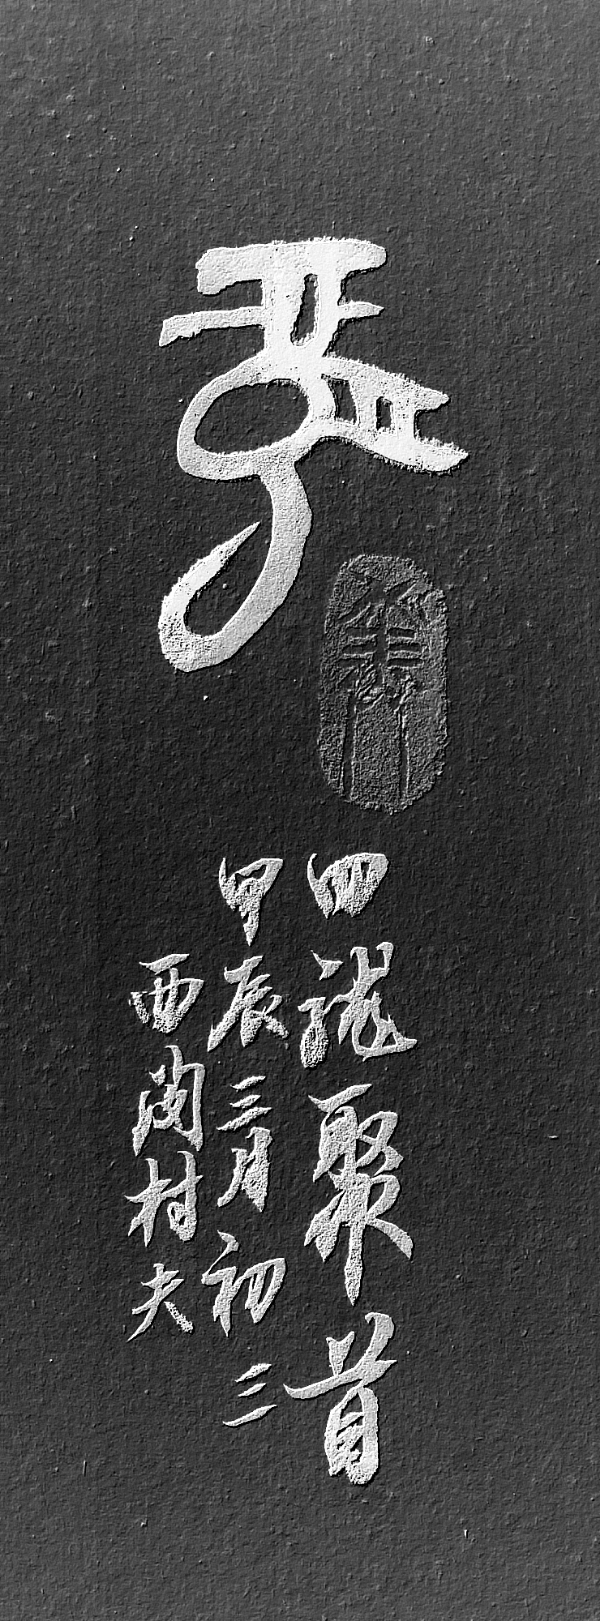 四龍聚首
甲辰三月初三
西村夫